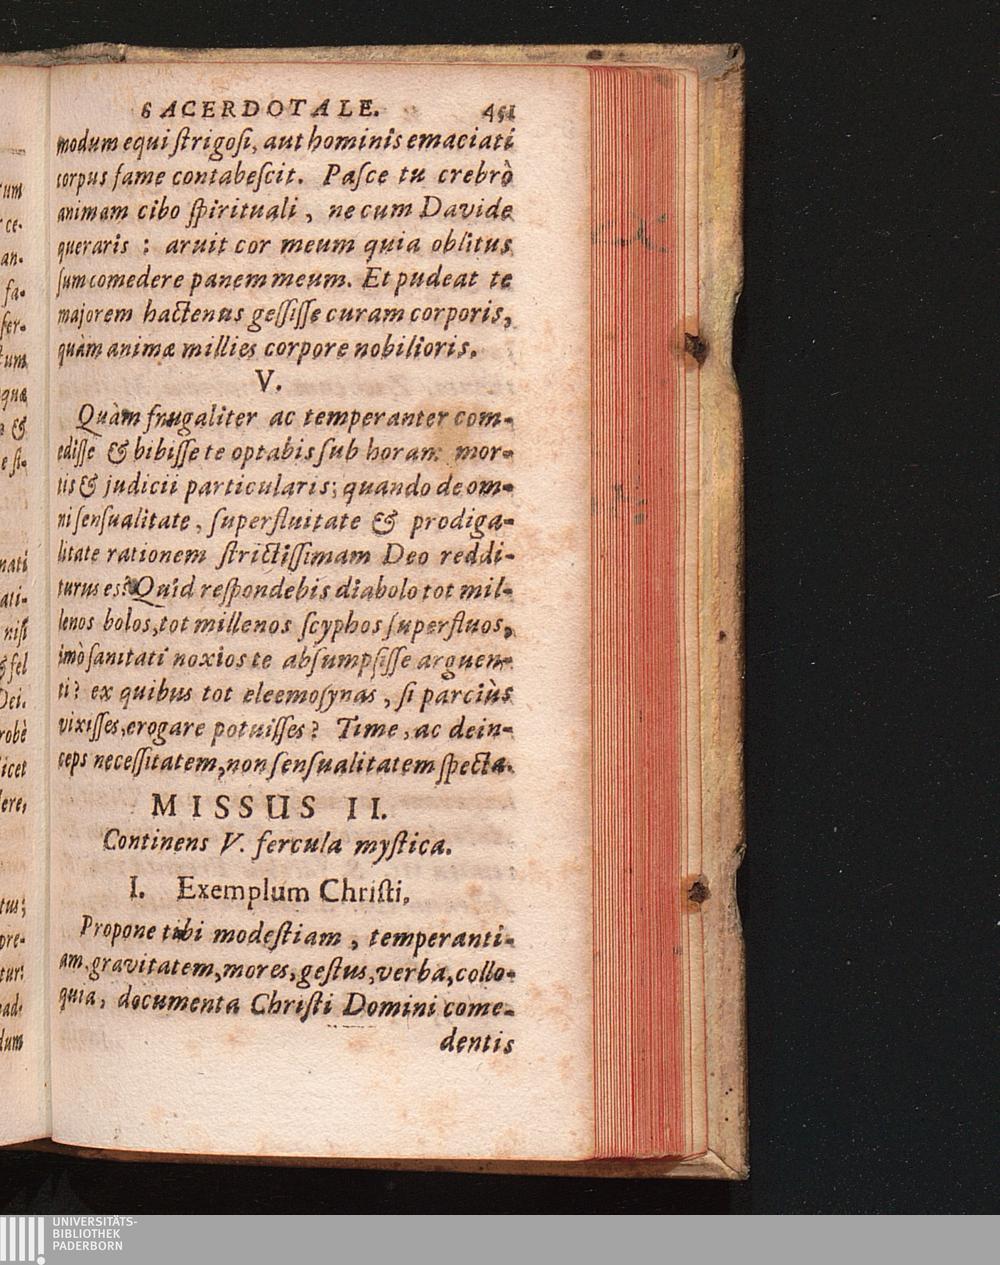 SACERDOTALE. 451
modum equi ſtrigoſi, aut hominis emaciati
corpus fame contabeſcit. Paſce tu crebrò
animam cibo ſpirituali, ne cum Davide
queraris : aruit cor meum quia oblitus
ſum comedere panem meum. Et pudeat te
majorem hactenus geſſiſſe curam corporis,
quàm animæ millies corpore nobilioris.
V.
Quàm frugaliter ac temperanter com-
ediſſe & bibiſſe te optabis ſub horam mor-
tis & judicii particularis; quando de om-
ni ſenſualitate, ſuperfluitate & prodiga-
litate rationem ſtrictiſſimam Deo reddi-
turus es? Quid reſpondebis diabolo tot mil-
lenos bolos, tot millenos ſcyphos ſuperfluos,
imò ſanitati noxios te abſumpſiſſe arguen-
ti? ex quibus tot eleemoſynas, ſi parciùs
vixiſſes, erogare potuiſſes? Time, ac dein-
ceps neceſſitatem, non ſenſualitatem ſpecta.
MISSUS II.
Continens V. fercula myſtica.
I. Exemplum Chriſti,
Propone tibi modeſtiam, temperanti-
am, gravitatem, mores, geſtus, verba, collo-
quia, documenta Chriſti Domini come-
dentis
UNIVERSITÄTS-
BIBLIOTHEK
PADERBORN